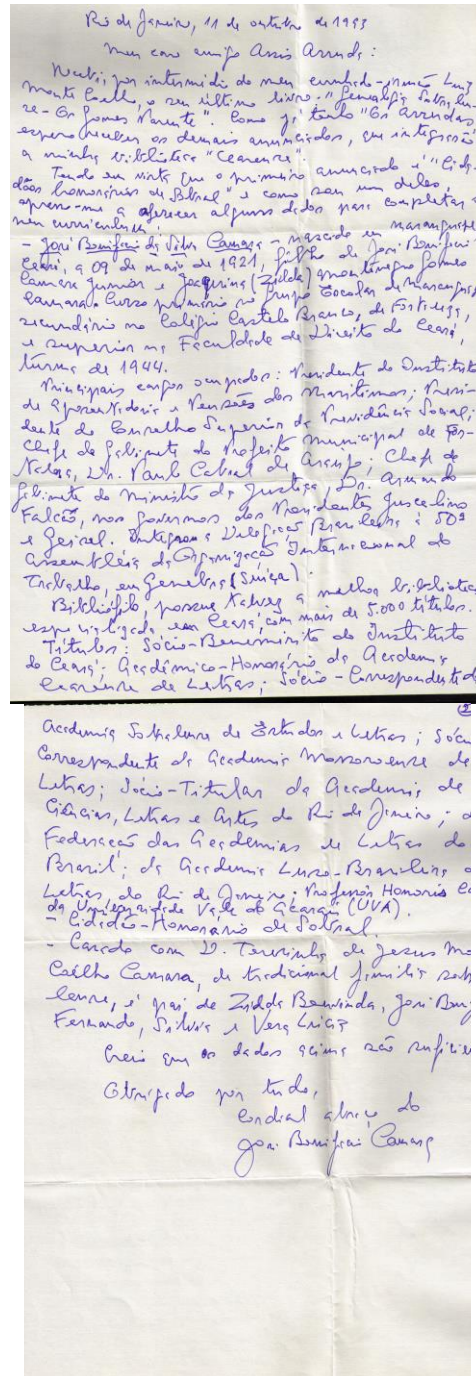 Rio de Janeiro, 11 de outubro de 1993
Meu caro amigo Assis Arruda:
Recebi, por intermédio do meu cunhado-irmão Luiz
Monte Coelho, o seu último livro "Genealogia Sobralen-
se - Os Gomes Parente". Como já tenho "Os Arrudas
espero receber os demais anunciados, que integrarão
a minha biblioteca "Cearense".
Tendo em vista que o primeiro anunciado é "Cida-
dãos honorários de Sobral" e como sou um deles,
apresso-me a oferecer alguns dados para completar o
meu curriculum:
- José Bonifácio da Silva Camara - nascido em Maranguape
Ceará, a 09 de maio de 1921, filho de José Bonifácio
Camara Junior e Joaquina (Zilda) Montenegro Gomes
Camara. Curso primário no Grupo Escolar de Maranguape,
secundário no Colégio Castelo Branco, de Fortaleza,
e superior na Faculdade de Direito do Ceará,
turma de 1944.
Principais cargos ocupados: Presidente do Instituto
de Aposentadoria e Pensões dos Marítimos; Presi-
dente do Conselho Superior da Previdência Social;
Chefe de Gabinete do Prefeito Municipal de For-
taleza, Dr. Paulo Cabral de Araujo; Chefe de
Gabinete do Ministro da Justiça, Dr. Armando
Falcão, nos governos dos Presidentes Juscelino
e Geisel. Integrou a Delegação Brasileira à 50ª
Assembléia da Organização Internacional do
Trabalho, em Genebra (Suiça).
Bibliófilo, possue talvez a melhor biblioteca
especializada em Ceará, com mais de 5.000 títulos.
Títulos: Sócio-Benemérito do Instituto
do Ceará; Acadêmico-Honorário da Academia
Cearense de Letras; Sócio-Correspondente da
(2
Academia Sobralense de Estudos e Letras; Sócio
Correspondente da Academia Mossoroense de
Letras; Sócio-Titular da Academia de
Ciências, Letras e Artes do Rio de Janeiro; d
Federação das Academias de Letras do
Brasil; da Academia Luso-Brasileira d
Letras, do Rio de Janeiro. Professor Honoris Ca
da Universidade Vale do Acaraú (UVA).
- Cidadão-Honorário de Sobral.
- Casado com D. Terezinha de Jesus Mo
Coêlho Camara, de tradicional família sob
lense, é pai de Zilda Benvinda, José Bon
Fernando, Silvia e Vera Lúcia
Creio que os dados acima são suficie
Obrigado por tudo,
cordial abraço do
José Bonifácio Camara